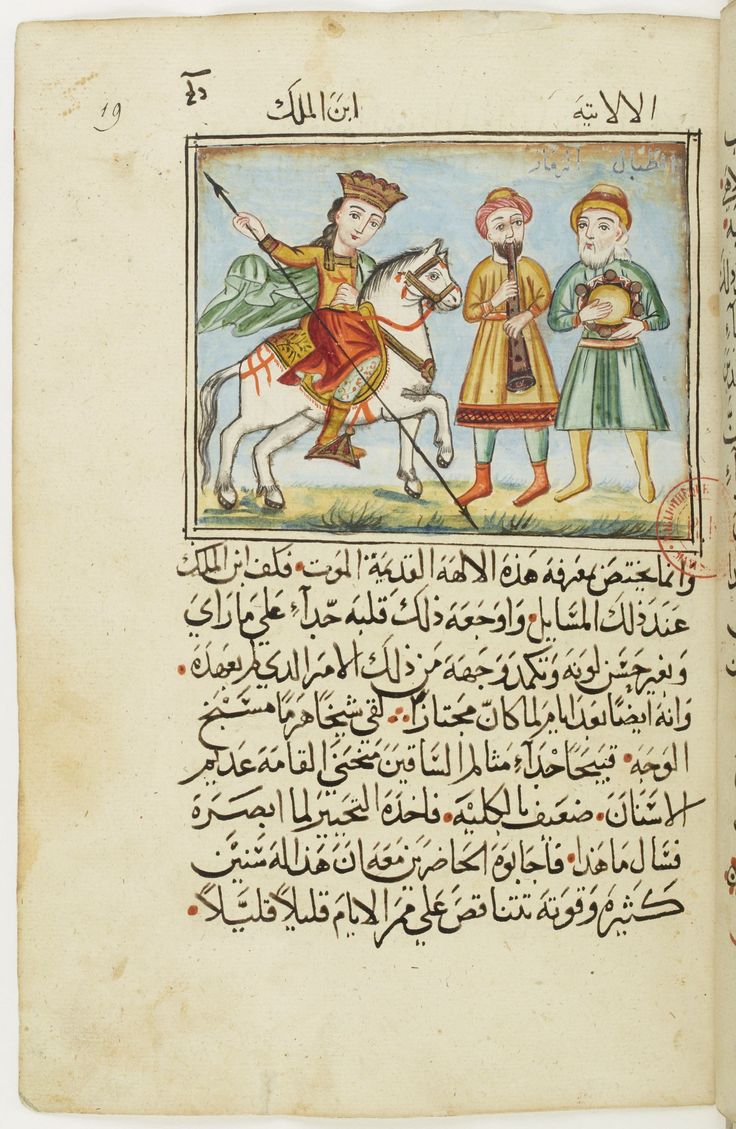 19
الالاتيه
ابن الملك
الطبال
وانما يختص بمعرفة هذه الالهة القديمة الموت. فكف ابن الملك
عند ذلك المسايل. واوجعه ذلك قلبه جدآء علي ما راي
وتغير حسن لونه وتكمد وجهه من ذلك الامر الدي لم يعهده.
وانه ايضًا بعد ايام لما كان مجتازًا. لقي شيخًا هرمًا مشبخ
الوجه. قبيحًا جدآء مثالم الساقين منحني القامة عديم
الاسنان. ضعيف بالكلية. فاخده التحيير لما ابصره
فسال ما هذا. فاجابوه الحاضرين معه ان هذا له سنين
كثيره وقوته تتناقص علي ممر الايام قليلاً قليلاً.